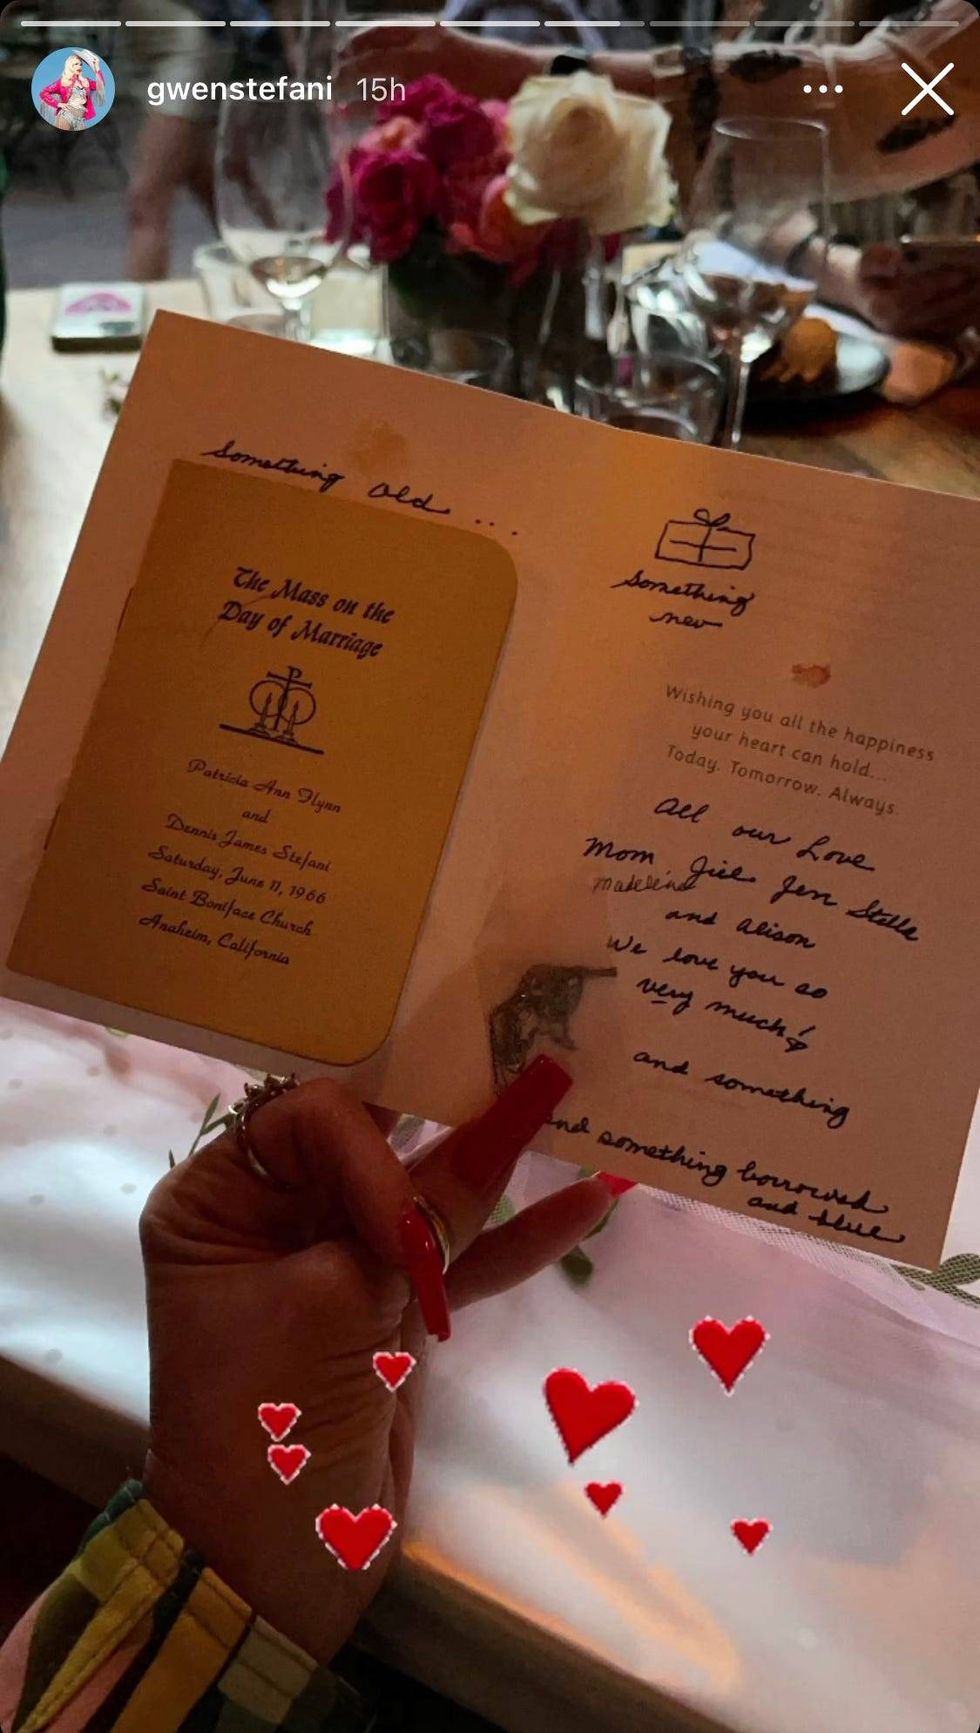 gwenstefani 15h
Something old ....
The Mass on the
Day of Marriage
Patricia Ann Flynn
and
Dennis James Stefani
Saturday, June 11, 1966
Saint Boniface Church
Anaheim, California
Something
new
Wishing you all the happiness
your heart can hold...
Today. Tomorrow. Always.
All our Love
Mom Jill Jen Stella
madeleine
and Alison
We love you so
very much!
and something
and something borrowed
and blue